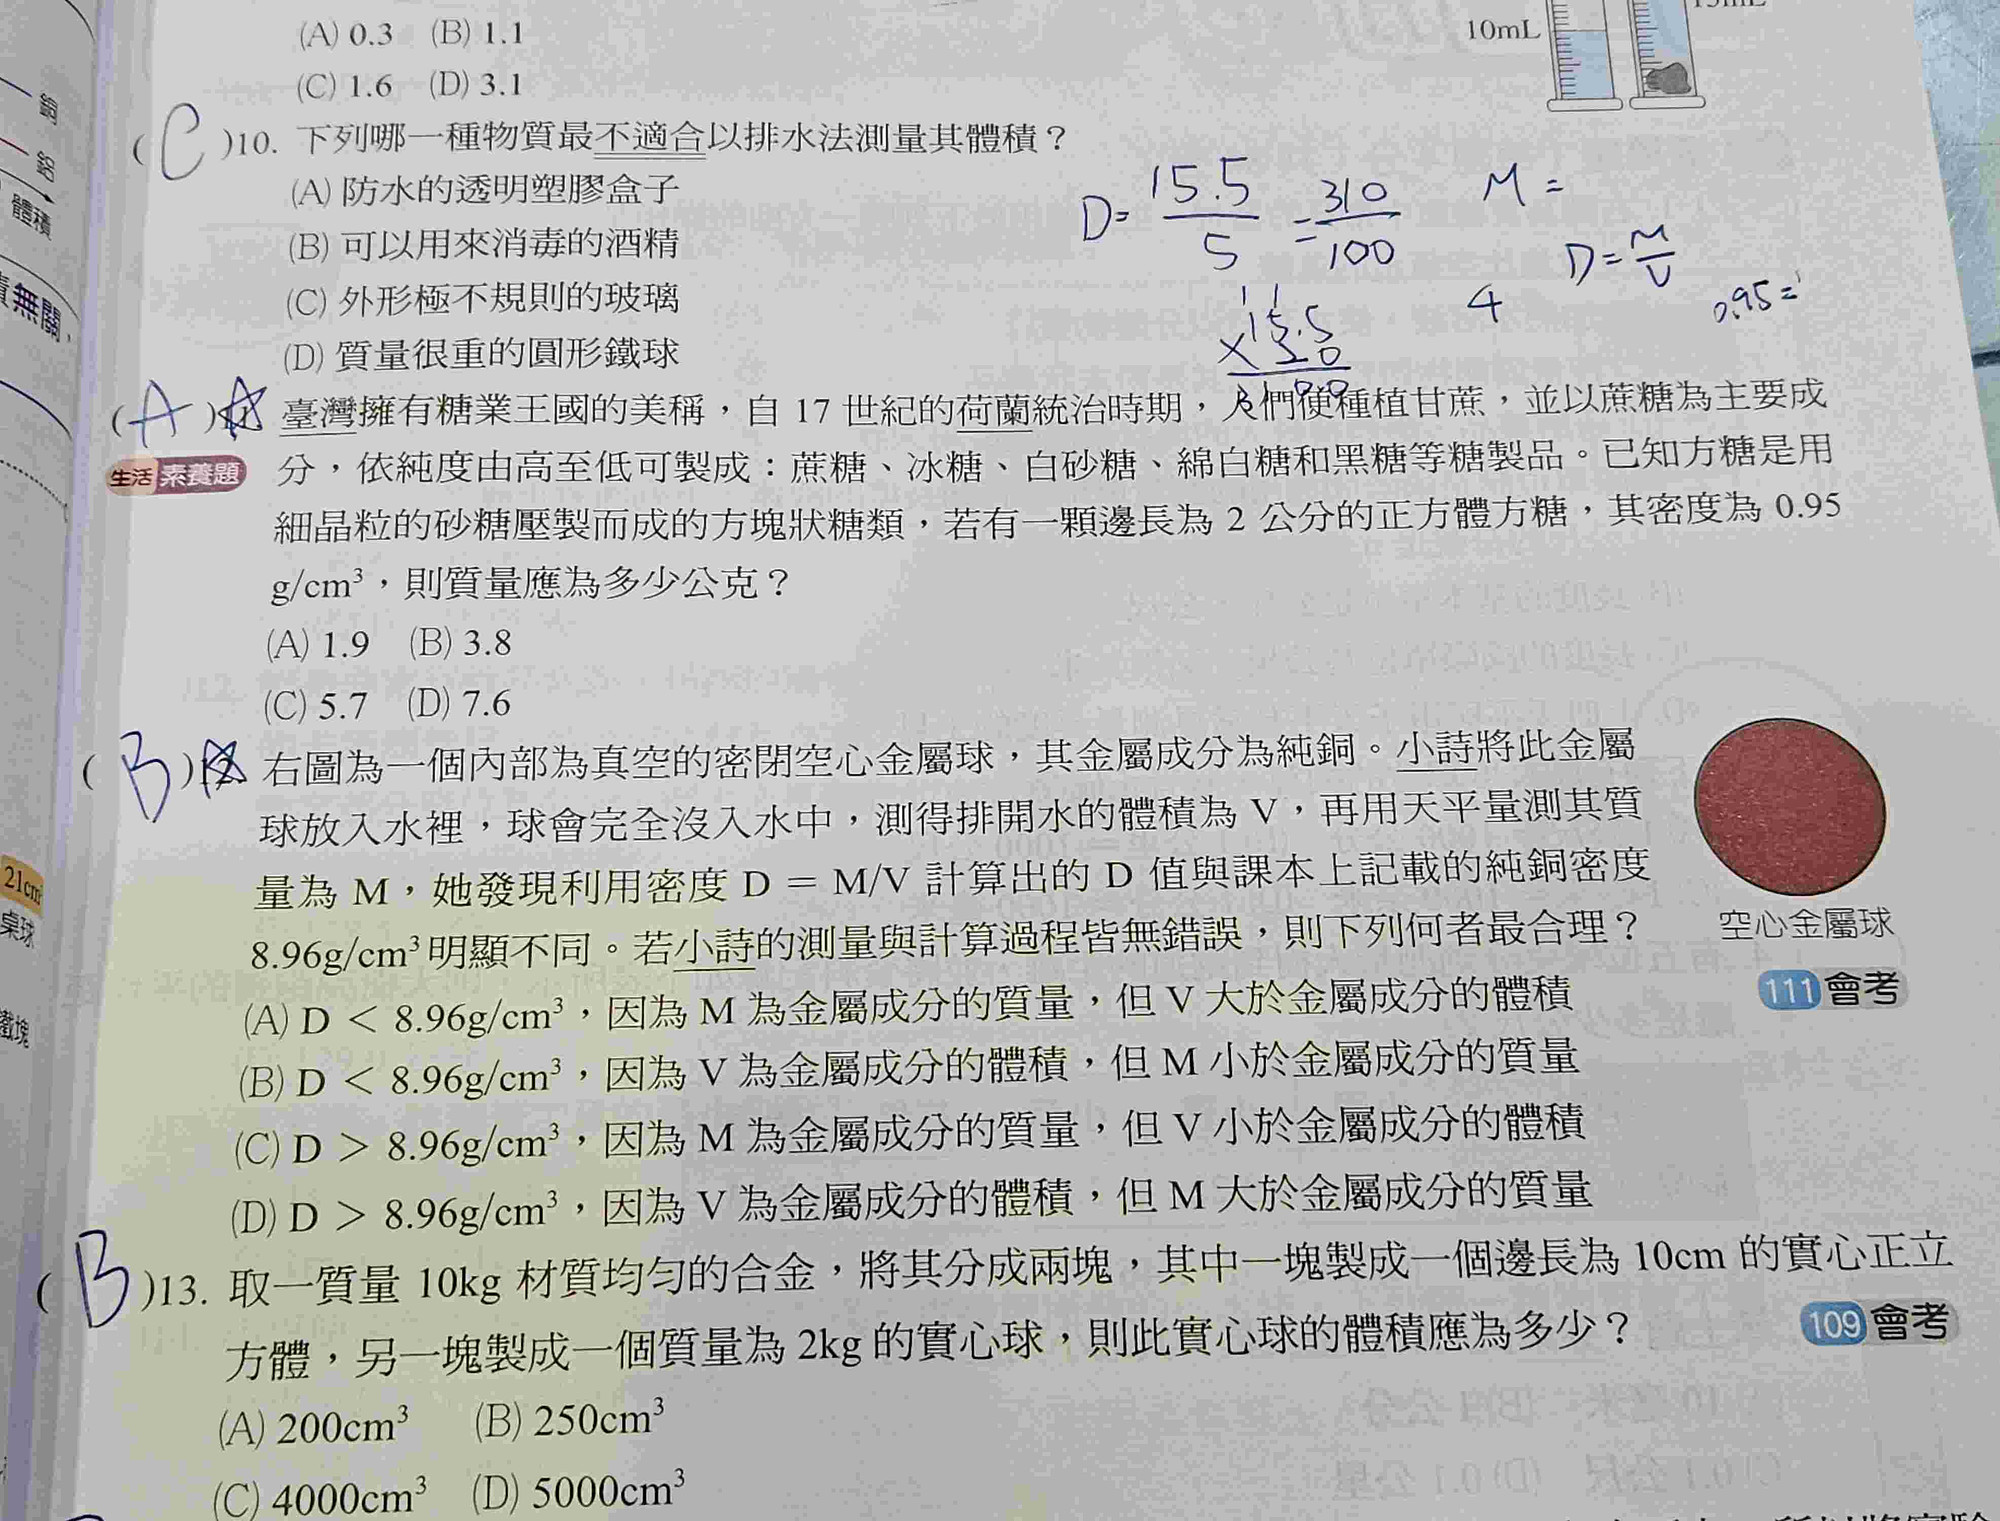 (A) 0.3 (B) 1.1
(C) 1.6 (D) 3.1
10mL
15mL
銅
鋁
體積
無關，
( C )10. 下列哪一種物質最不適合以排水法測量其體積？
(A) 防水的透明塑膠盒子
(B) 可以用來消毒的酒精
(C) 外形極不規則的玻璃
(D) 質量很重的圓形鐵球
D= 15.5/5 = 310/100
M =
D= M/V
4
0.95=
15.5
×20
( A )11. 臺灣擁有糖業王國的美稱，自 17 世紀的荷蘭統治時期，人們便種植甘蔗，並以蔗糖為主要成
生活 素養題
分，依純度由高至低可製成：蔗糖、冰糖、白砂糖、綿白糖和黑糖等糖製品。已知方糖是用
細晶粒的砂糖壓製而成的方塊狀糖類，若有一顆邊長為 2 公分的正方體方糖，其密度為 0.95
g/cm³，則質量應為多少公克？
(A) 1.9 (B) 3.8
(C) 5.7 (D) 7.6
( B )12. 右圖為一個內部為真空的密閉空心金屬球，其金屬成分為純銅。小詩將此金屬
球放入水裡，球會完全沒入水中，測得排開水的體積為 V，再用天平量測其質
量為 M，她發現利用密度 D = M/V 計算出的 D 值與課本上記載的純銅密度
8.96g/cm³ 明顯不同。若小詩的測量與計算過程皆無錯誤，則下列何者最合理？
空心金屬球
111 會考
(A) D < 8.96g/cm³，因為 M 為金屬成分的質量，但 V 大於金屬成分的體積
(B) D < 8.96g/cm³，因為 V 為金屬成分的體積，但 M 小於金屬成分的質量
(C) D > 8.96g/cm³，因為 M 為金屬成分的質量，但 V 小於金屬成分的體積
(D) D > 8.96g/cm³，因為 V 為金屬成分的體積，但 M 大於金屬成分的質量
21cm
桌球
鐵塊
( B )13. 取一質量 10kg 材質均勻的合金，將其分成兩塊，其中一塊製成一個邊長為 10cm 的實心正立
方體，另一塊製成一個質量為 2kg 的實心球，則此實心球的體積應為多少？
109 會考
(A) 200cm³ (B) 250cm³
(C) 4000cm³ (D) 5000cm³